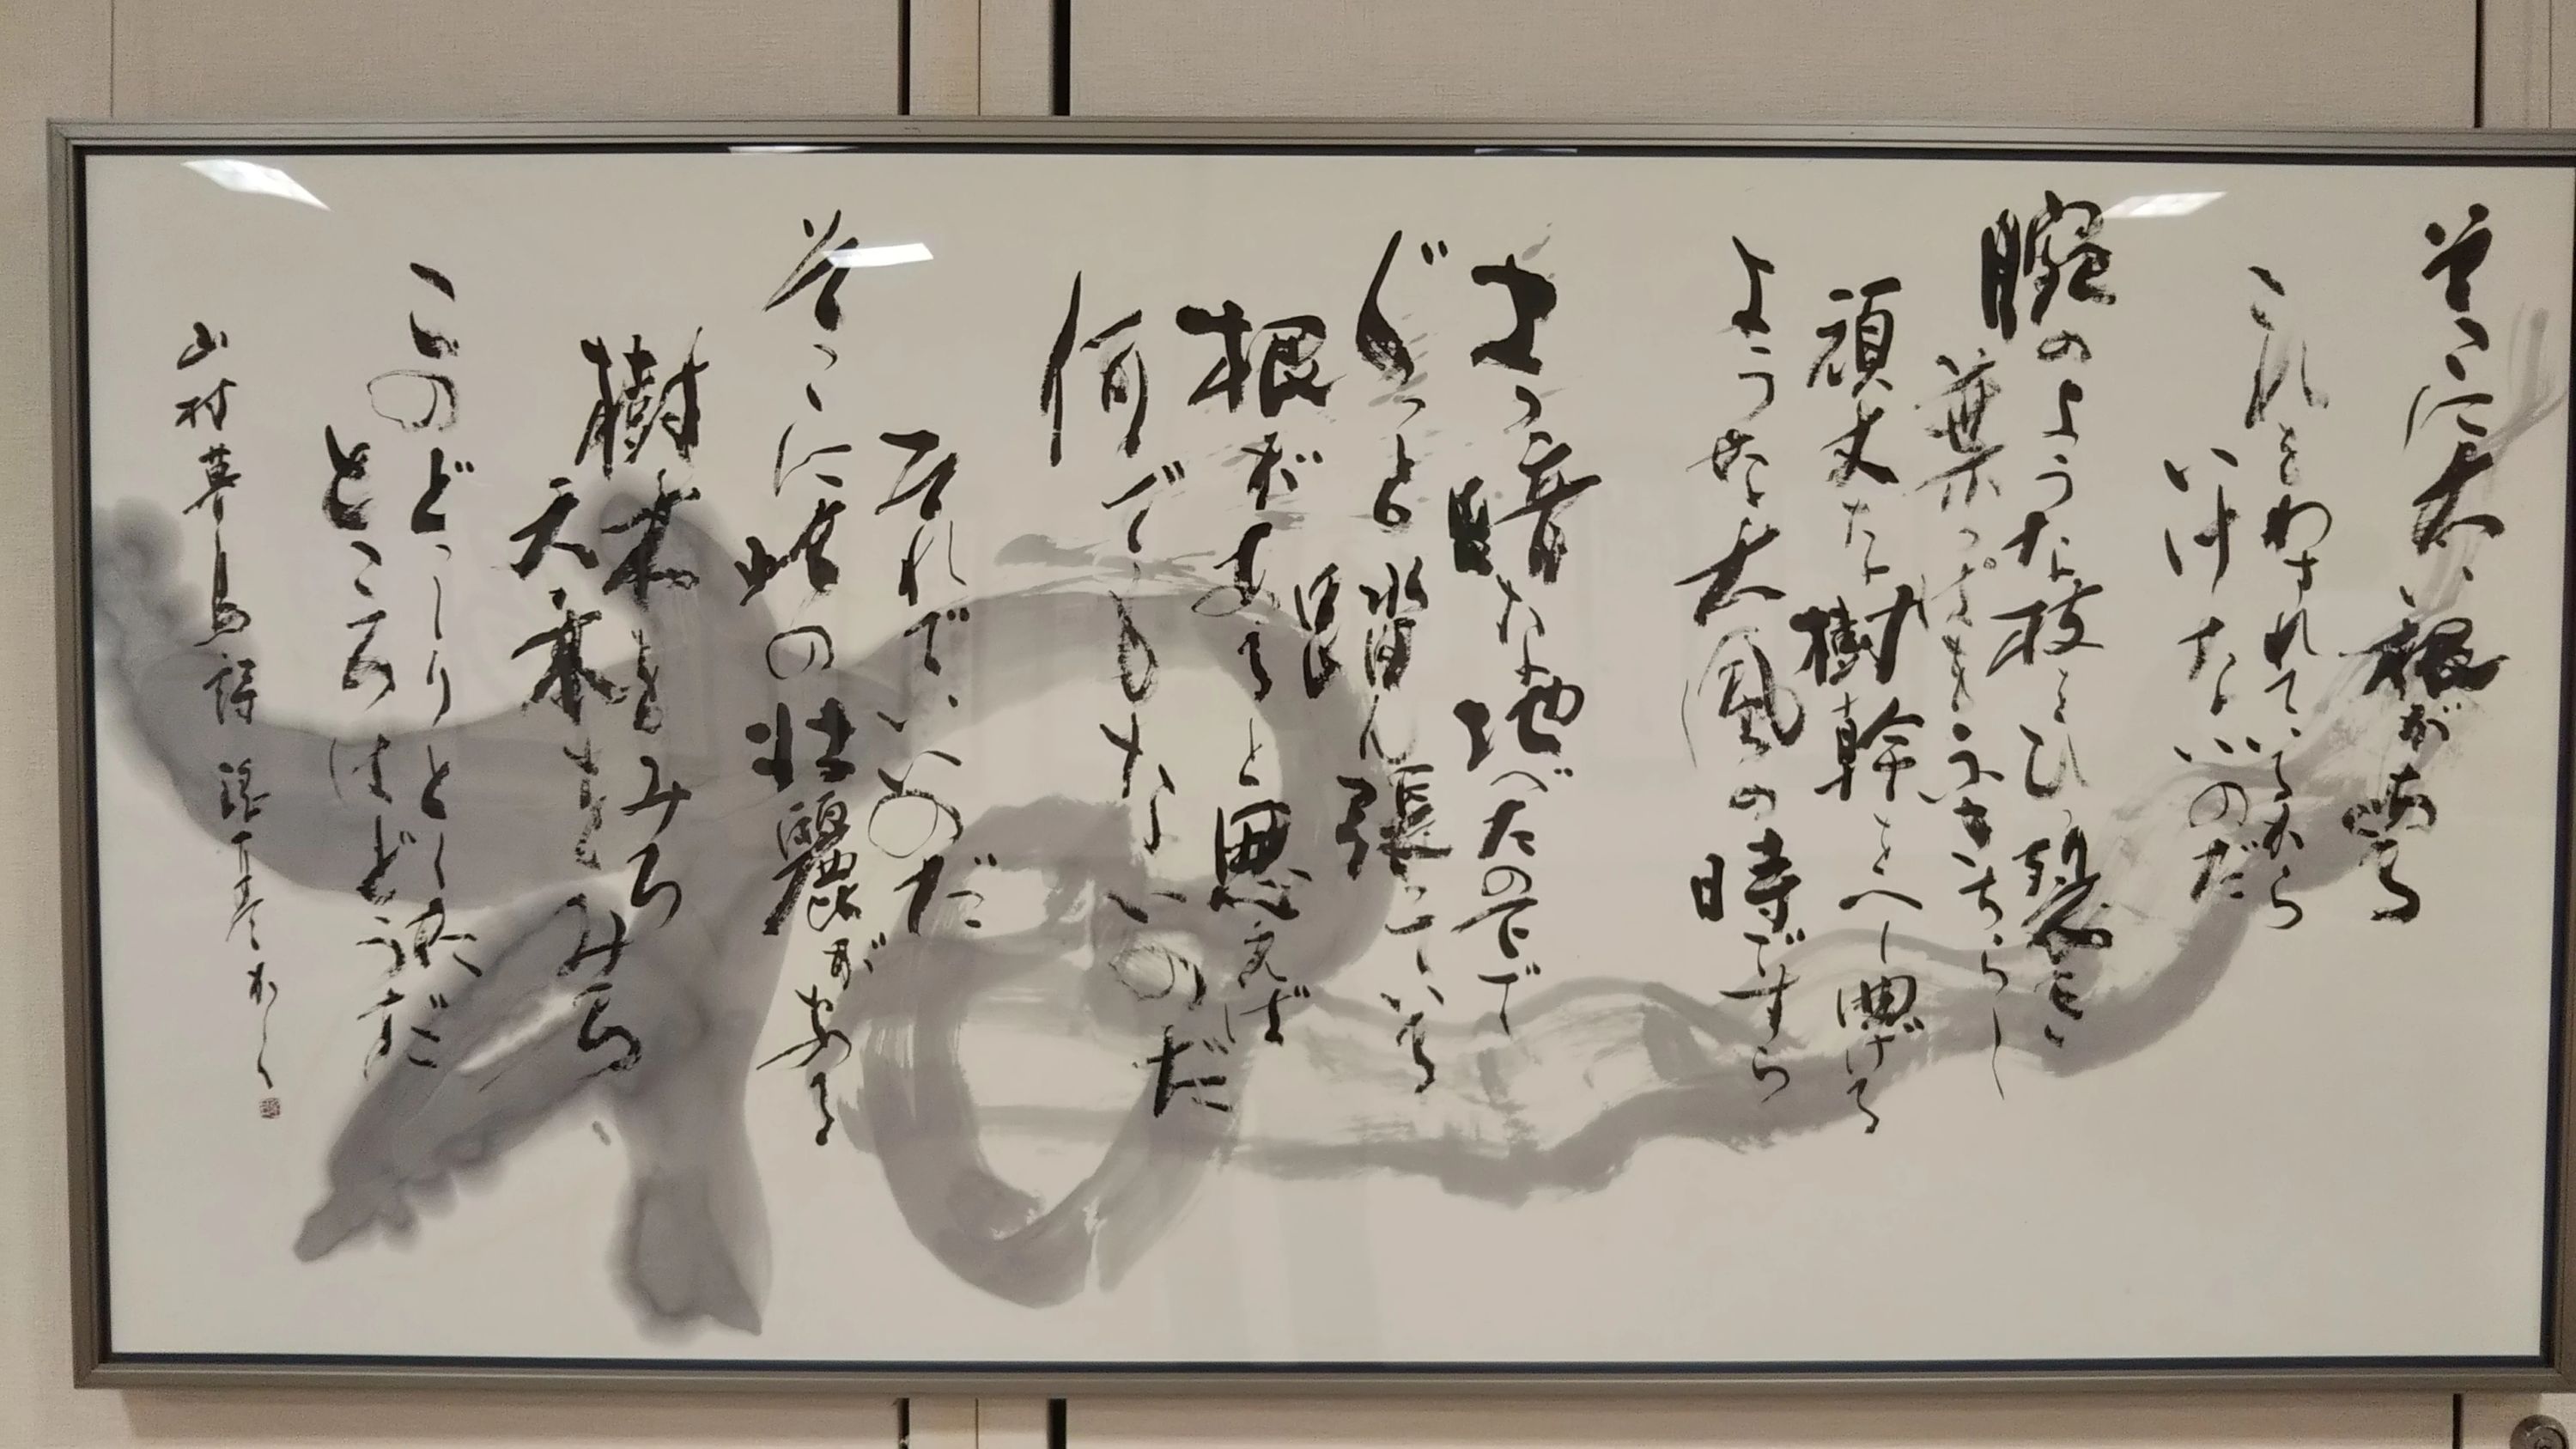 そこに太い根がある
これをわすれているから
いけないのだ
腕のような枝をひっ裂き
葉っぱをふきちらし
頑丈な樹幹をへし曲げる
ような大風の時ですら
まっ暗な地べたの下で
ぐっと踏ん張っている
根があると思えば
何でもないのだ
それでいいのだ
そこに此の壮麗がある
樹木をみろ
大木をみろ
このどっしりとした
ところはどうだ
山村暮鳥詩 かく